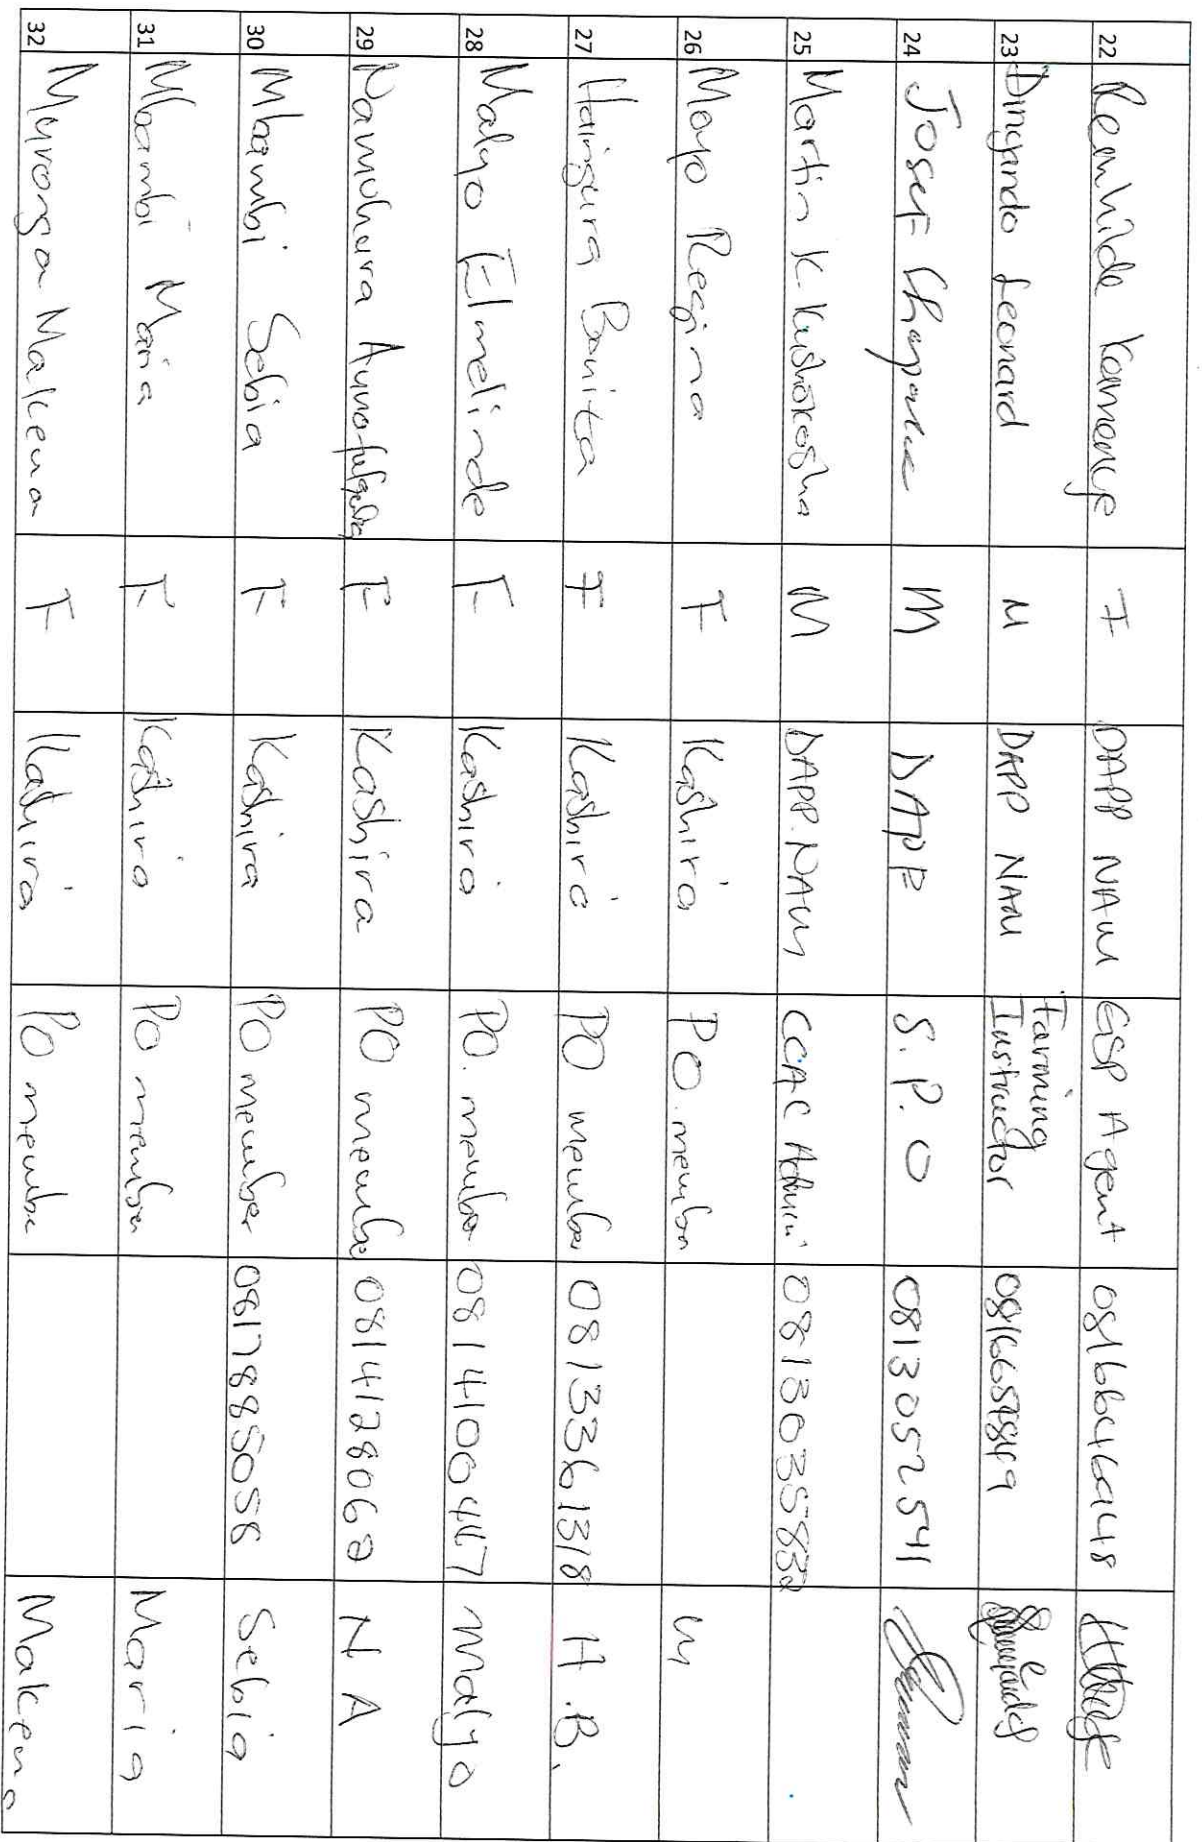 22 Reenhilde Kamenye F DAPP NAM GSP Agent 0816646948
23 Dinyando Leonard M DAPP NAM Farming Instructor
24 Josef M DAPP S.P.O 0813052541
25 Martin K. Kushokosha M DAPP.NAM CCAC Admin 0813035832
26 Moyo Regina F Kashira PO.member M
27 Haingura Bonita F Kashira PO member 0813361318 H.B.
28 Malyo Elmelinde F Kashira PO.member 0814100467 Malyo
29 Namuhara F Kashira PO membe 0814128062 N A
30 Mbambi Sebia F Kashira PO member 0817885058 Sebia
31 Mbambi Maria F Kashira PO member Maria
32 Muronga Makena F Kashira PO membe Makena